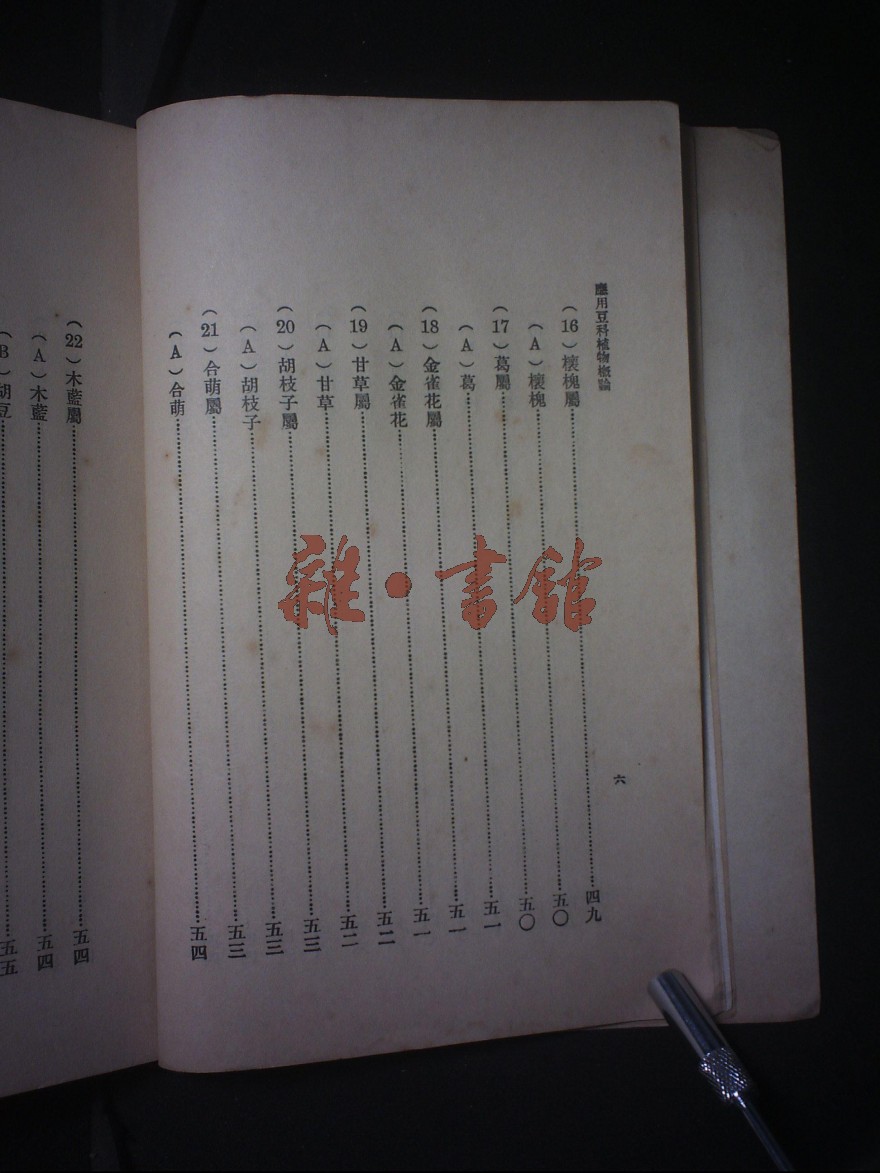 應用豆科植物概論
六
（16）櫰槐屬……四九
（A）櫰槐……五〇
（17）葛屬……五〇
（A）葛……五一
（18）金雀花屬……五一
（A）金雀花……五一
（19）甘草屬……五二
（A）甘草……五二
（20）胡枝子屬……五三
（A）胡枝子……五三
（21）合萌屬……五三
（A）合萌……五四
（22）木藍屬……五四
（A）木藍……五四
（B）胡豆……五五
雜·書館